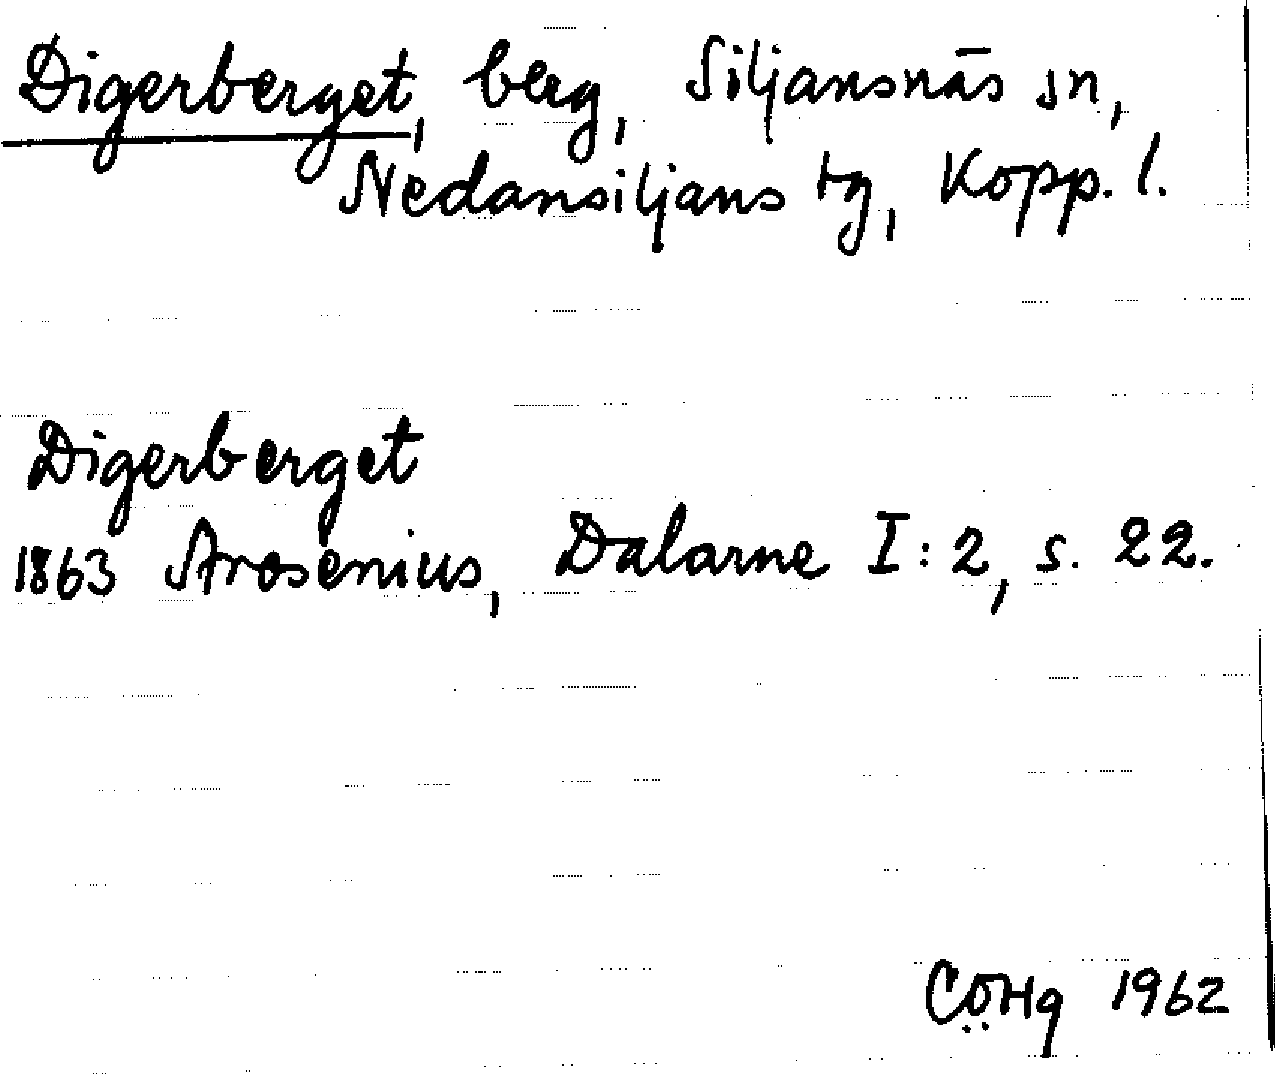 Digerberget, berg, Siljansnäs sn,
Nedansiljans tg, Kopp. l.
Digerberget
1863 Arosenius, Dalarne I:2, s. 22.
CÖHg 1962